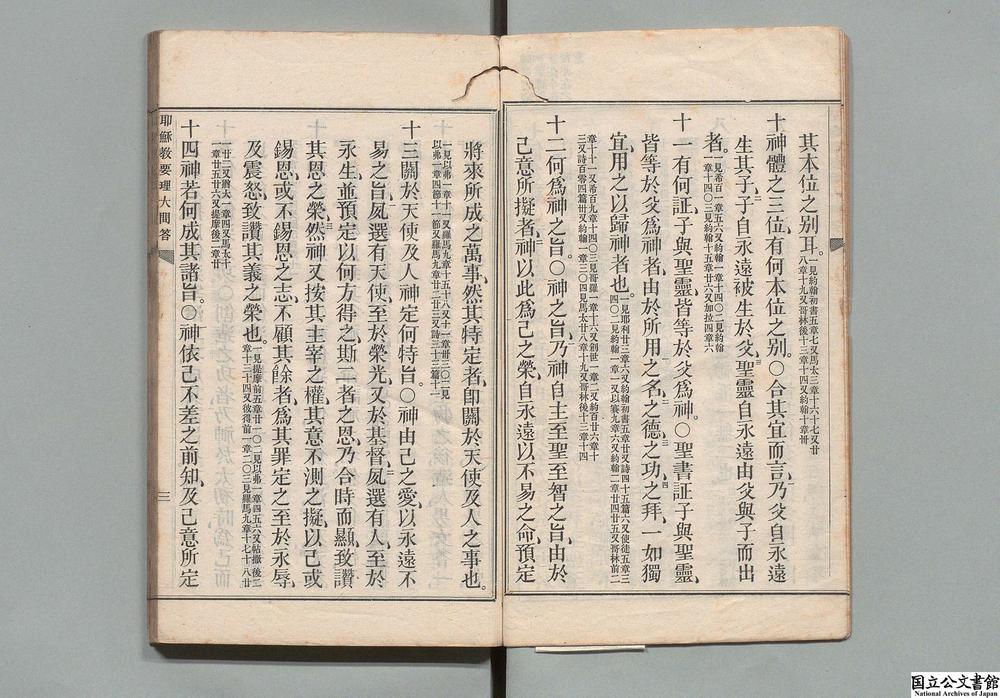 其本位之别耳。一見約翰初書五章七又馬太三章十六十七又廿八章十九又哥林後十三章十四又約翰十章卅
十神體之三位有何本位之别。○合其宜而言乃父自永遠
生其子子自永遠被生於父聖靈自永遠由父與子而出
者。一見希百一章五六又約翰一章十四○二見約翰一章十四○三見約翰十五章廿六又加拉四章六
十一有何証子與聖靈皆等於父爲神。○聖書証子與聖靈
皆等於父爲神者由於所用之名之德之功之拜一如獨
宜用之以歸神者也。一見耶利廿三章六又約翰初書五章廿又詩四十五篇六又使徒五章三四○二見約翰一章一又以賽九章六又約翰二章廿四廿五又哥林前二
章十十一又希百九章十四○三見哥羅一章十六又創世一章二又約百廿六章十三又詩百零四篇卅又約翰一章三○四見馬太廿八章十九又哥林後十三章十四
十二何爲神之旨。○神之旨乃神自主至聖至智之旨由於
己意所擬者神以此爲己之榮自永遠以不易之命預定
將來所成之萬事然其特定者卽關於天使及人之事也。
一見以弗一章十一又羅馬九章十五十八又十一章卅三○二見以弗一章四節十一節又羅馬九章廿二廿三又詩三十三篇十一
十三關於天使及人神定何特旨。○神由己之愛以永遠不
易之旨夙選有天使至於榮光又於基督夙選有人至於
永生並預定以何方得之斯二者之恩乃合時而顯致讚
其恩之榮然神又按其主宰之權其意不測之擬以己或
錫恩或不錫恩之志不顧其餘者爲其罪定之至於永辱
及震怒致讚其義之榮也。一見提摩前五章廿一○二見以弗一章四五六又帖撒後二章十三十四又彼得前一章二○三見羅馬九章十七十八廿
一廿二又猶大一章四又馬太十一章廿五廿六又提摩後二章廿
十四神若何成其諸旨。○神依己不差之前知及己意所定
耶穌教要理大問答
三
国立公文書館
National Archives of Japan